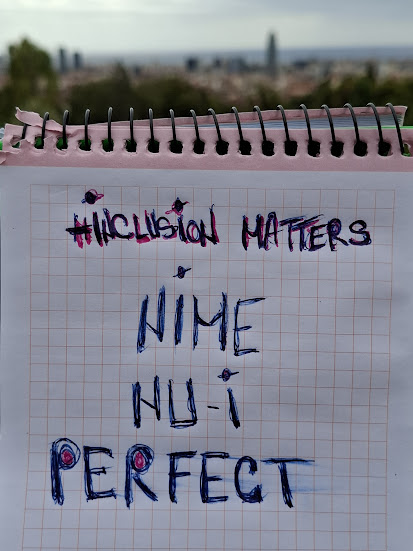 #INCLUSION MATTERS
NIME
NU-i
PERFECT